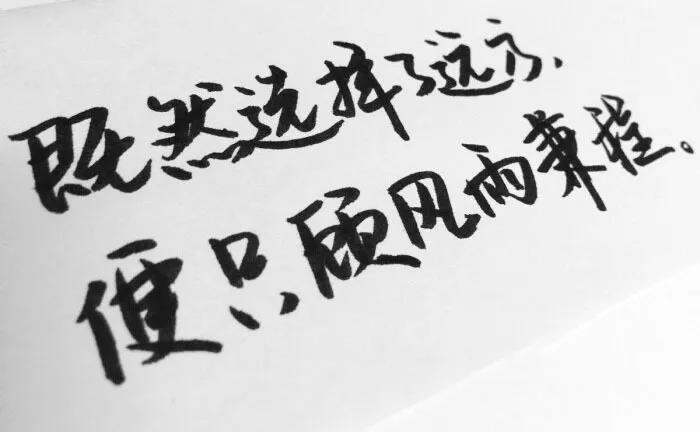 既然选择了远方、
便只顾风雨兼程。